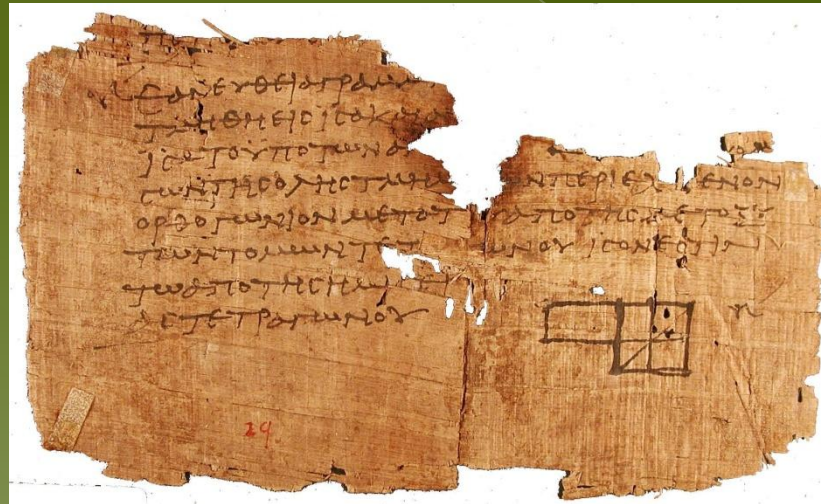 ΕΑΝ ΕΥΘΕΙΑ ΓΡΑΜ
ΤΜΗΘΗ ΕΙϹ ΙϹΑ ΚΑΙ Α
ΙϹΑ ΤΟ ΥΠΟ ΤΩΝ Α
ϹΩΝ ΤΗϹ ΟΛΗϹ ΤΜΗ ΩΝ ΠΕΡΙΕΧ ΜΕΝΟΝ
ΟΡΘΟΓΩΝΙΟΝ ΜΕΤΑ ΤΟ ΑΠΟ ΤΗϹ ΜΕΤΟΞΥ
ΤΩΝ ΤΟΜΩΝ ΤΕΤ ΩΝΟΥ ΙϹΟΝ ΕϹΤΙΝ
ΤΩ ΑΠΟ ΤΗϹ ΗΜΙϹΕΙ
ΑϹ ΤΕΤΡΑΓΩΝΟΥ
29